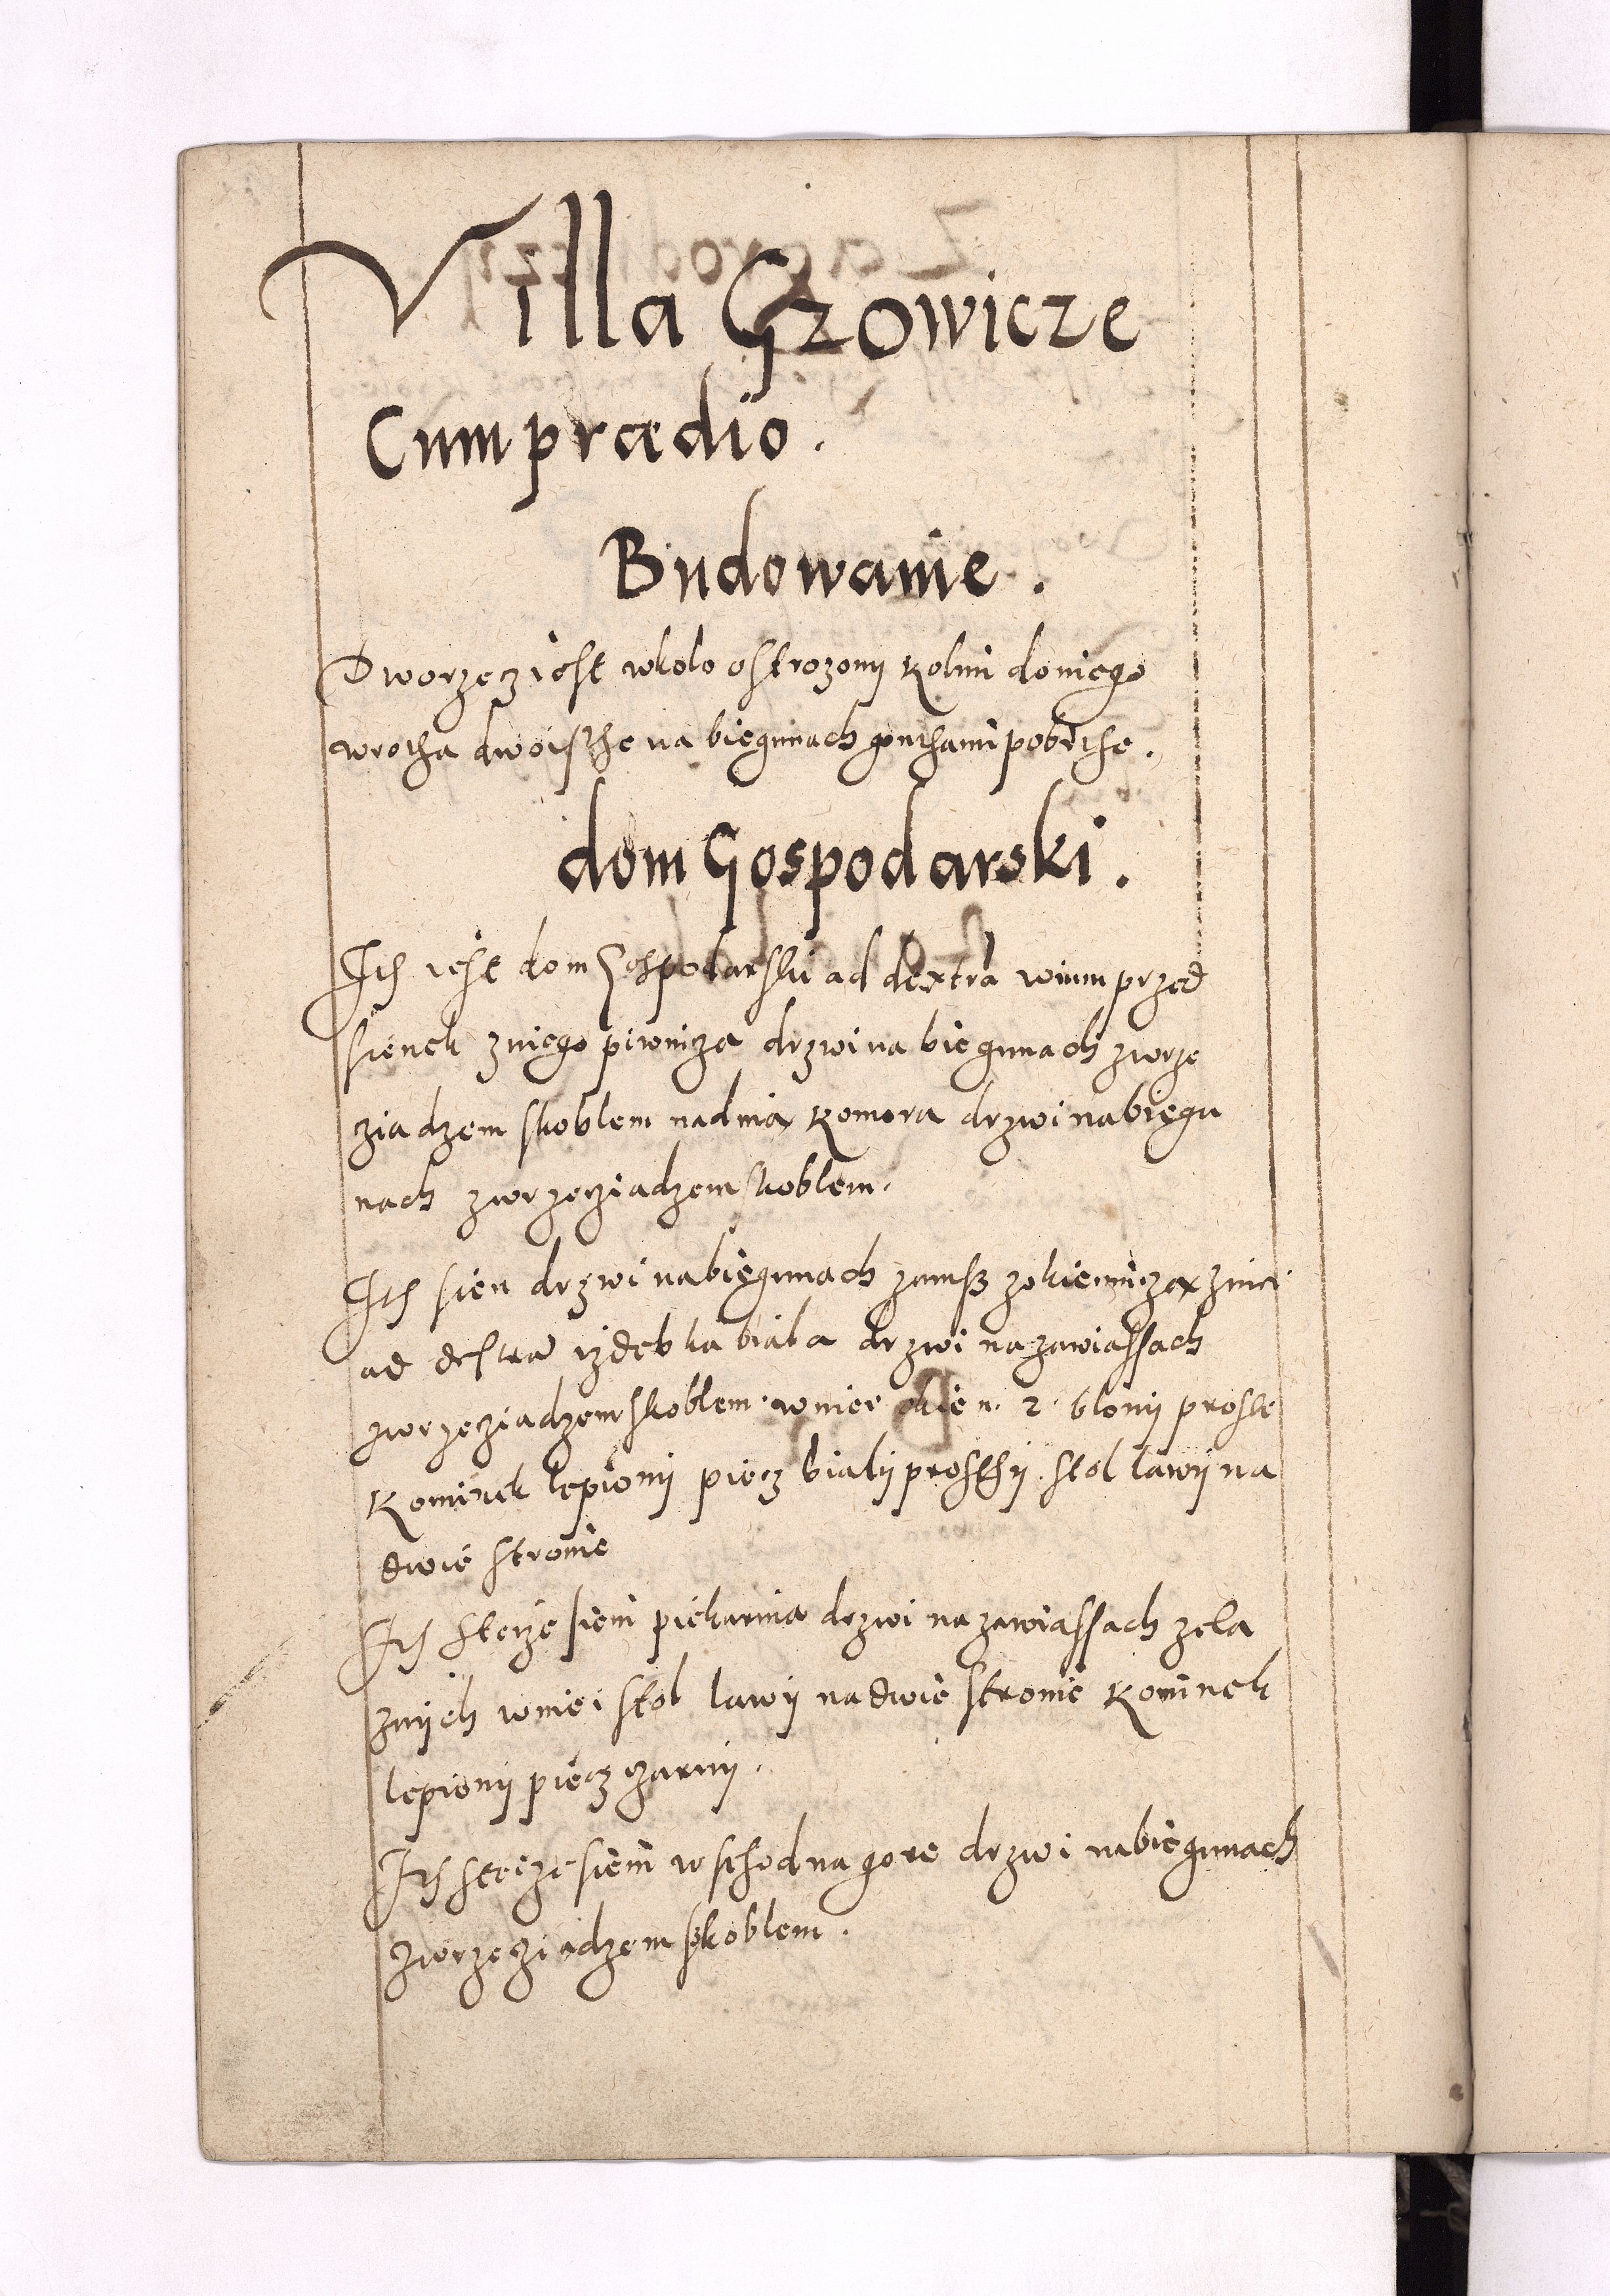 Villa Gzowicze
Cum prædio.
Budowanie.
Dworzecz iest wkolo ostrozony Kolmi doniego
wrotha dwoisthe na biegunach gonthami pobithe.
dom Gospodarski.
Ith iest dom Gospodarski ad dextrã wnim przed
sienek zniego piwnicza drzwi na biegunach zwrze
ziadzem skoblem nadnią Komora drzwi nabiegu
nach zwrzecziadzem skoblem.
Ith sien drzwi nabiegunach zokienniczą znieÿ
ad dextrã izdebka biala drzwi nazawiassach
zwrzecziadzem skoblem. wniei okien. 2. blony proste
Kominek lepiony piecz bialy prosthy. stol lawy na
dwie stronie
Ith steize sieni piekarnia drzwi nazawiassach zela
znych wniei stol lawy nadwie stronie Kominek
lepiony piecz czarny.
Ith steize sieni wschod na gore drzwi nabiegunach
zwrzecziadzem skoblem.